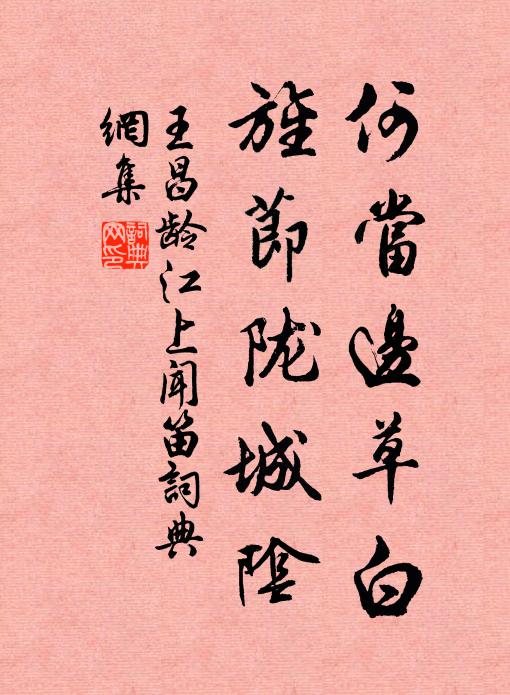 何當邊草白
旌節陇城陰
王昌龄江上聞笛詞典
網集
詞典网印